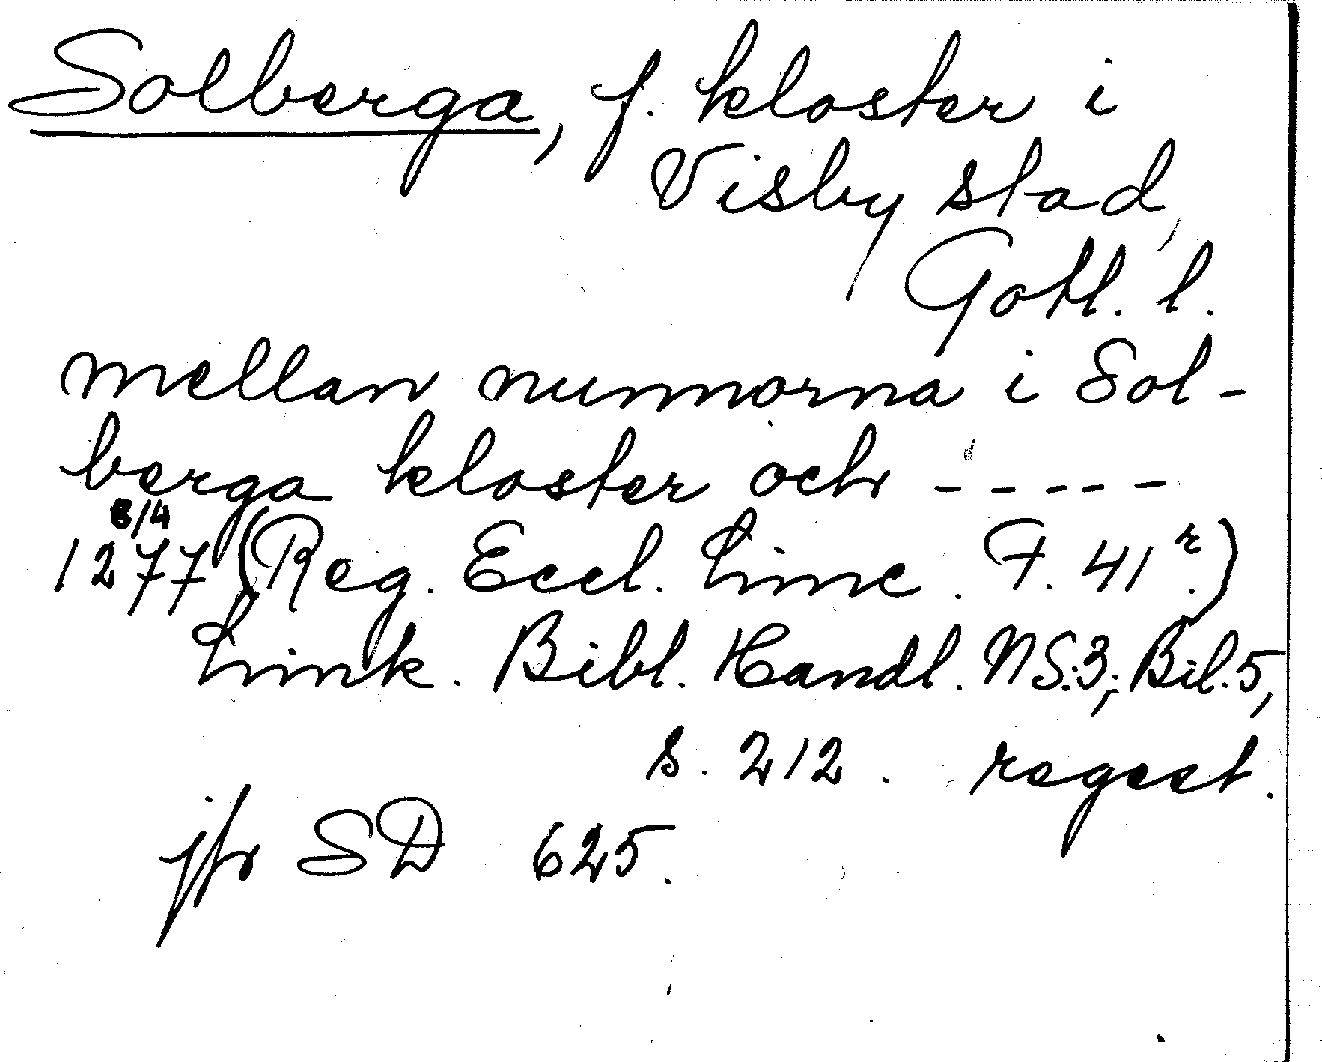 Solberga, f. kloster i
Visby stad,
Gotl. l.
mellan nunnorna i Sol-
berga kloster och -----
8/4
1277 (Reg. Eccl. Linc. F. 41r.)
Link. Bibl. Handl. NS.3; Bil.5,
s. 212. regest.
jfr SD 625.